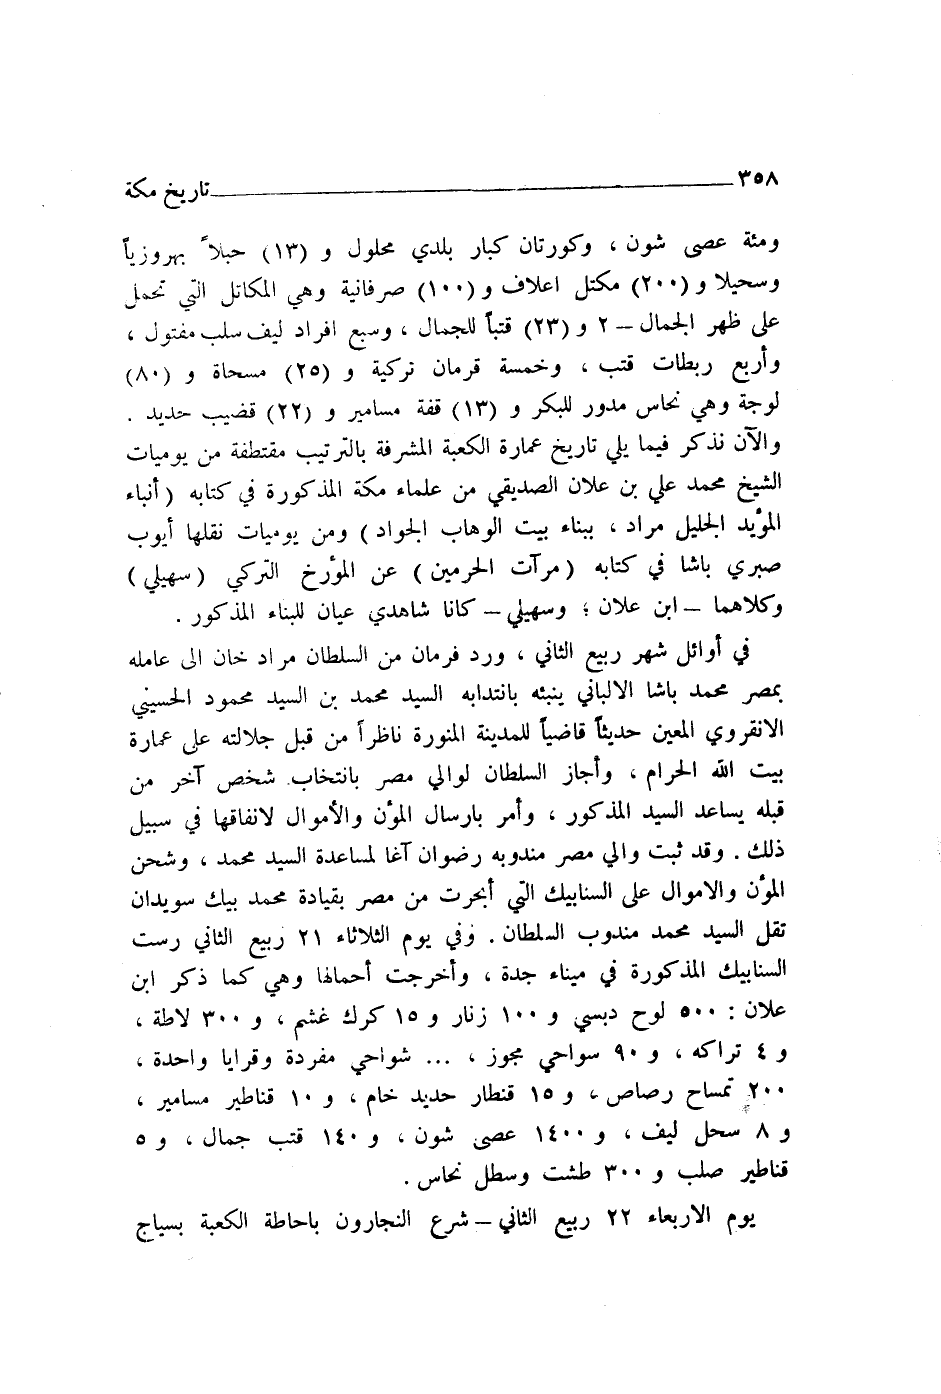 ٣٥٨ ــــــ تاريخ مكة
ومئة عصى شون ، وكورتان كبار بلدي محلول و (١٣) حبلاً بهروزياً
وسحيلا و (٢٠٠) مكتل اعلاف و (١٠٠) صرفانية وهي المكاتل التي تحمل
على ظهر الجمال – ٢ و (٢٣) قتباً للجمال ، وسبع افراد ليف سلب مفتول ،
وأربع ربطات قتب ، وخمسة قرمان تركية و (٢٥) مسحاة و (٨٠)
لوجة وهي نحاس مدور للبكر و (١٣) قفة مسامير و (٢٢) قضيب حديد .
والآن نذكر فيما يلي تاريخ عمارة الكعبة المشرفة بالترتيب مقتطفة من يوميات
الشيخ محمد علي بن علان الصديقي من علماء مكة المذكورة في كتابه ( أنباء
المؤيد الجليل مراد ، ببناء بيت الوهاب الجواد ) ومن يوميات نقلها أيوب
صبري باشا في كتابه ( مرآت الحرمين ) عن المؤرخ التركي ( سهيلي )
وكلاهما – ابن علان ؛ وسهيلي – كانا شاهدي عيان للبناء المذكور .
في أوائل شهر ربيع الثاني ، ورد فرمان من السلطان مراد خان الى عامله
بمصر محمد باشا الالباني ينبئه بانتدابه السيد محمد بن السيد محمود الحسيني
الانقروي المعين حديثاً قاضياً للمدينة المنورة ناظراً من قبل جلالته على عمارة
بيت الله الحرام ، وأجاز السلطان لوالي مصر بانتخاب شخص آخر من
قبله يساعد السيد المذكور ، وأمر بارسال المؤن والأموال لانفاقها في سبيل
ذلك . وقد ثبت والي مصر مندوبه رضوان آغا لمساعدة السيد محمد ، وشحن
المؤن والاموال على السنابيك التي أبحرت من مصر بقيادة محمد بيك سويدان
تقل السيد محمد مندوب السلطان . وفي يوم الثلاثاء ٢١ ربيع الثاني رست
السنابيك المذكورة في ميناء جدة ، وأخرجت أحمالها وهي كما ذكر ابن
علان : ٥٠٠ لوح دبسي و ١٠٠ زنار و ١٥ كرك غشم ، و ٣٠٠ لاطة ،
و ٤ تراكه ، و ٩٠ سواحي مجوز ، ... شواحي مفردة وقرايا واحدة ،
٢٠٠ تمساح رصاص ، و ١٥ قنطار حديد خام ، و ١٠ قناطير مسامير ،
و ٨ سحل ليف ، و ١٤٠٠ عصى شون ، و ١٤٠ قتب جمال ، و ٥
قناطير صلب و ٣٠٠ طشت وسطل نحاس .
يوم الاربعاء ٢٢ ربيع الثاني – شرع النجارون باحاطة الكعبة بسياج